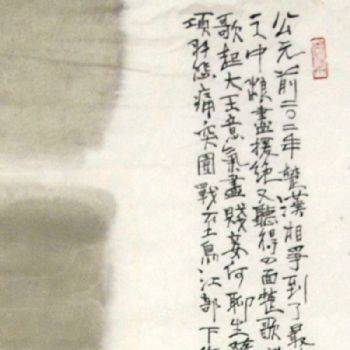 公元前二〇二年楚汉相爭到了最
之中粮盡援绝又聽得四面楚歌
歌起大王意氣盡賤妾何聊生
項羽悲痛突圍戰至烏江部下